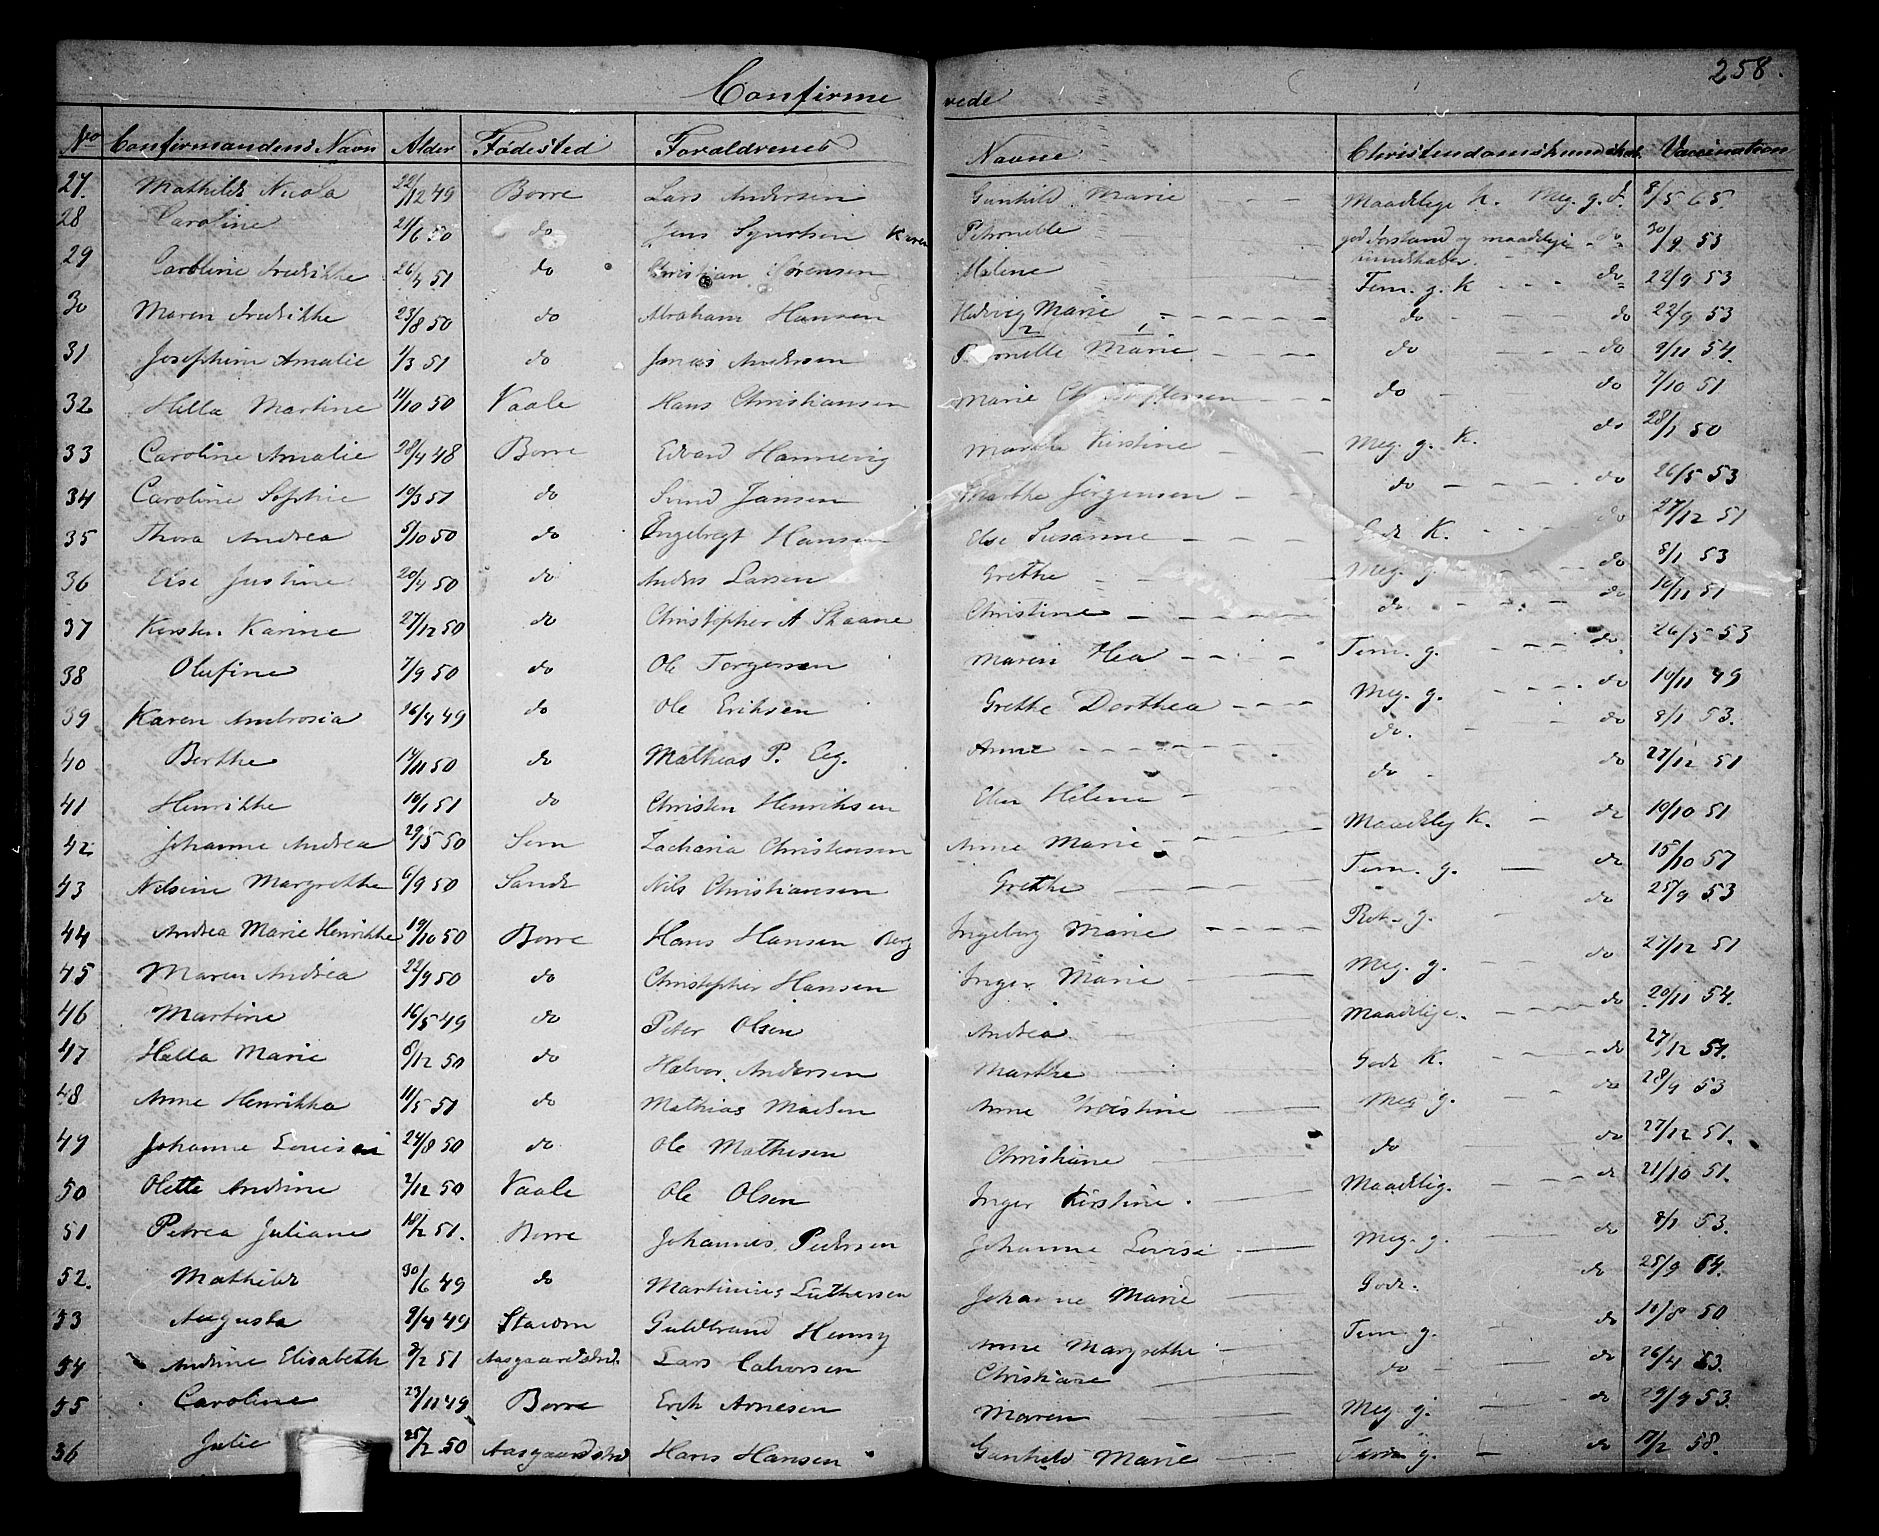 258.
Confirmerede
No Confirmandens Navn Alder Fødested Forældrenes Navne Christendomskundskab Vaccination
27. Mathilde Nicola 22/12 49 Borre Lars Andersen Gunhild Marie Maadelige K. Meg. g. f. 8/5 65.
28 Caroline 21/6 50 do Jens Karen Petronelle god Forstand og maadelige do 30/9 53
kundskaber.
29 Caroline Fredrikke 26/4 51 do Christian Sørensen Malene Tem. g. K do 22/9 53
30 Maren Fredrikke 23/8 50 do Abraham Hansen Hedvig Marie do do 22/9 53
31 Josephine Amalie 1/3 51 do Jonas Andersen Petronelle Marie do do 9/11 54.
32 Hella Martine 11/10 50 Vaale Hans Christiansen Marie Christoffersen do do 7/10 51
33 Caroline Amalie 28/4 48 Borre Edvard Hannevig Marthe Kirstine Meg. g. K. do 28/1 50
34 Caroline Sophie 19/3 51 do Svend Jansen Marthe Jørgensen do do 26/5 53
35 Thora Andrea 5/10 50 do Engebregt Hansen Else Susanne Gode K. do 27/12 51
36 Else Justine 20/4 50 do Anders Larsen Grethe Meg. g. do 8/1 53
37 Kirsten Karine 27/12 50 do Christopher A Skaane Christine do do 10/11 51
38 Olufine 7/9 50 do Ole Torgersen Maren Olea Tem. g. do 26/5 53
39 Karen Ambrosia 26/4 49 do Ole Eriksen Grethe Dorthea Meg. g. do 10/11 49
40 Berthe 14/11 50 do Mathias P. Eeg. Anne do. do 8/1 53.
41 Henrikke 10/1 51 do Christen Henriksen Helene do do 27/12 51
42 Johanne Andrea 29/5 50 Sem Zacharia Christensen Anne Marie Maadelig K. do 10/10 51
43 Nilsine Margrethe 6/9 50 Sande Nils Christiansen Grethe Tem. g. do 15/10 57
44 Andrea Marie Henrikke 19/10 50 Borre Hans Hansen Berg Ingeborg Marie g. do 25/9 53
45 Maren Andrea 22/9 50 do Christopher Hansen Inger Marie Meg. g. do 27/12 51
46 Martine 16/5 49 do Peter Olsen Andrea Maadelige. do 20/11 54.
47 Hella Marie 8/12 50 do Halvor Andersen Marthe Gode K. do 27/12 51.
48 Anne Henrikka 11/5 51 do Mathias Madsen Anne Christine Meg g. do 28/9 53
49 Johanne Louise 24/8 50 do Ole Mathisen Christiane do do 27/12 51.
50 Olette Andrine 2/12 50 Vaale Ole Olsen Inger Kirstine. Maadelig. do 21/10 51.
51 Petrea Juliane 18/2 51. Borre Johannes Pedersen Johanne Lovise Meg. g. do 8/1 53.
52. Mathilde 30/6 49 do Martinius Luthersen Johanne Marie Gode. do 25/9 54.
53 Augusta 9/4 49 Guldbrand Henny Anne Margrethe Tem. g. do 10/8 50
54 Andrine Elisabeth 3/2 51 Aasgaardstrd. Lars Halvorsen Christiane do do 26/4 53.
55 Caroline 23/11 49 Borre Erik Arnesen Maren Meg g. do 29/9 53.
56 Julie 25/2 50 Aasgaardstrd Hans Hansen Gunhild Marie Tem g. do 17/2 58.